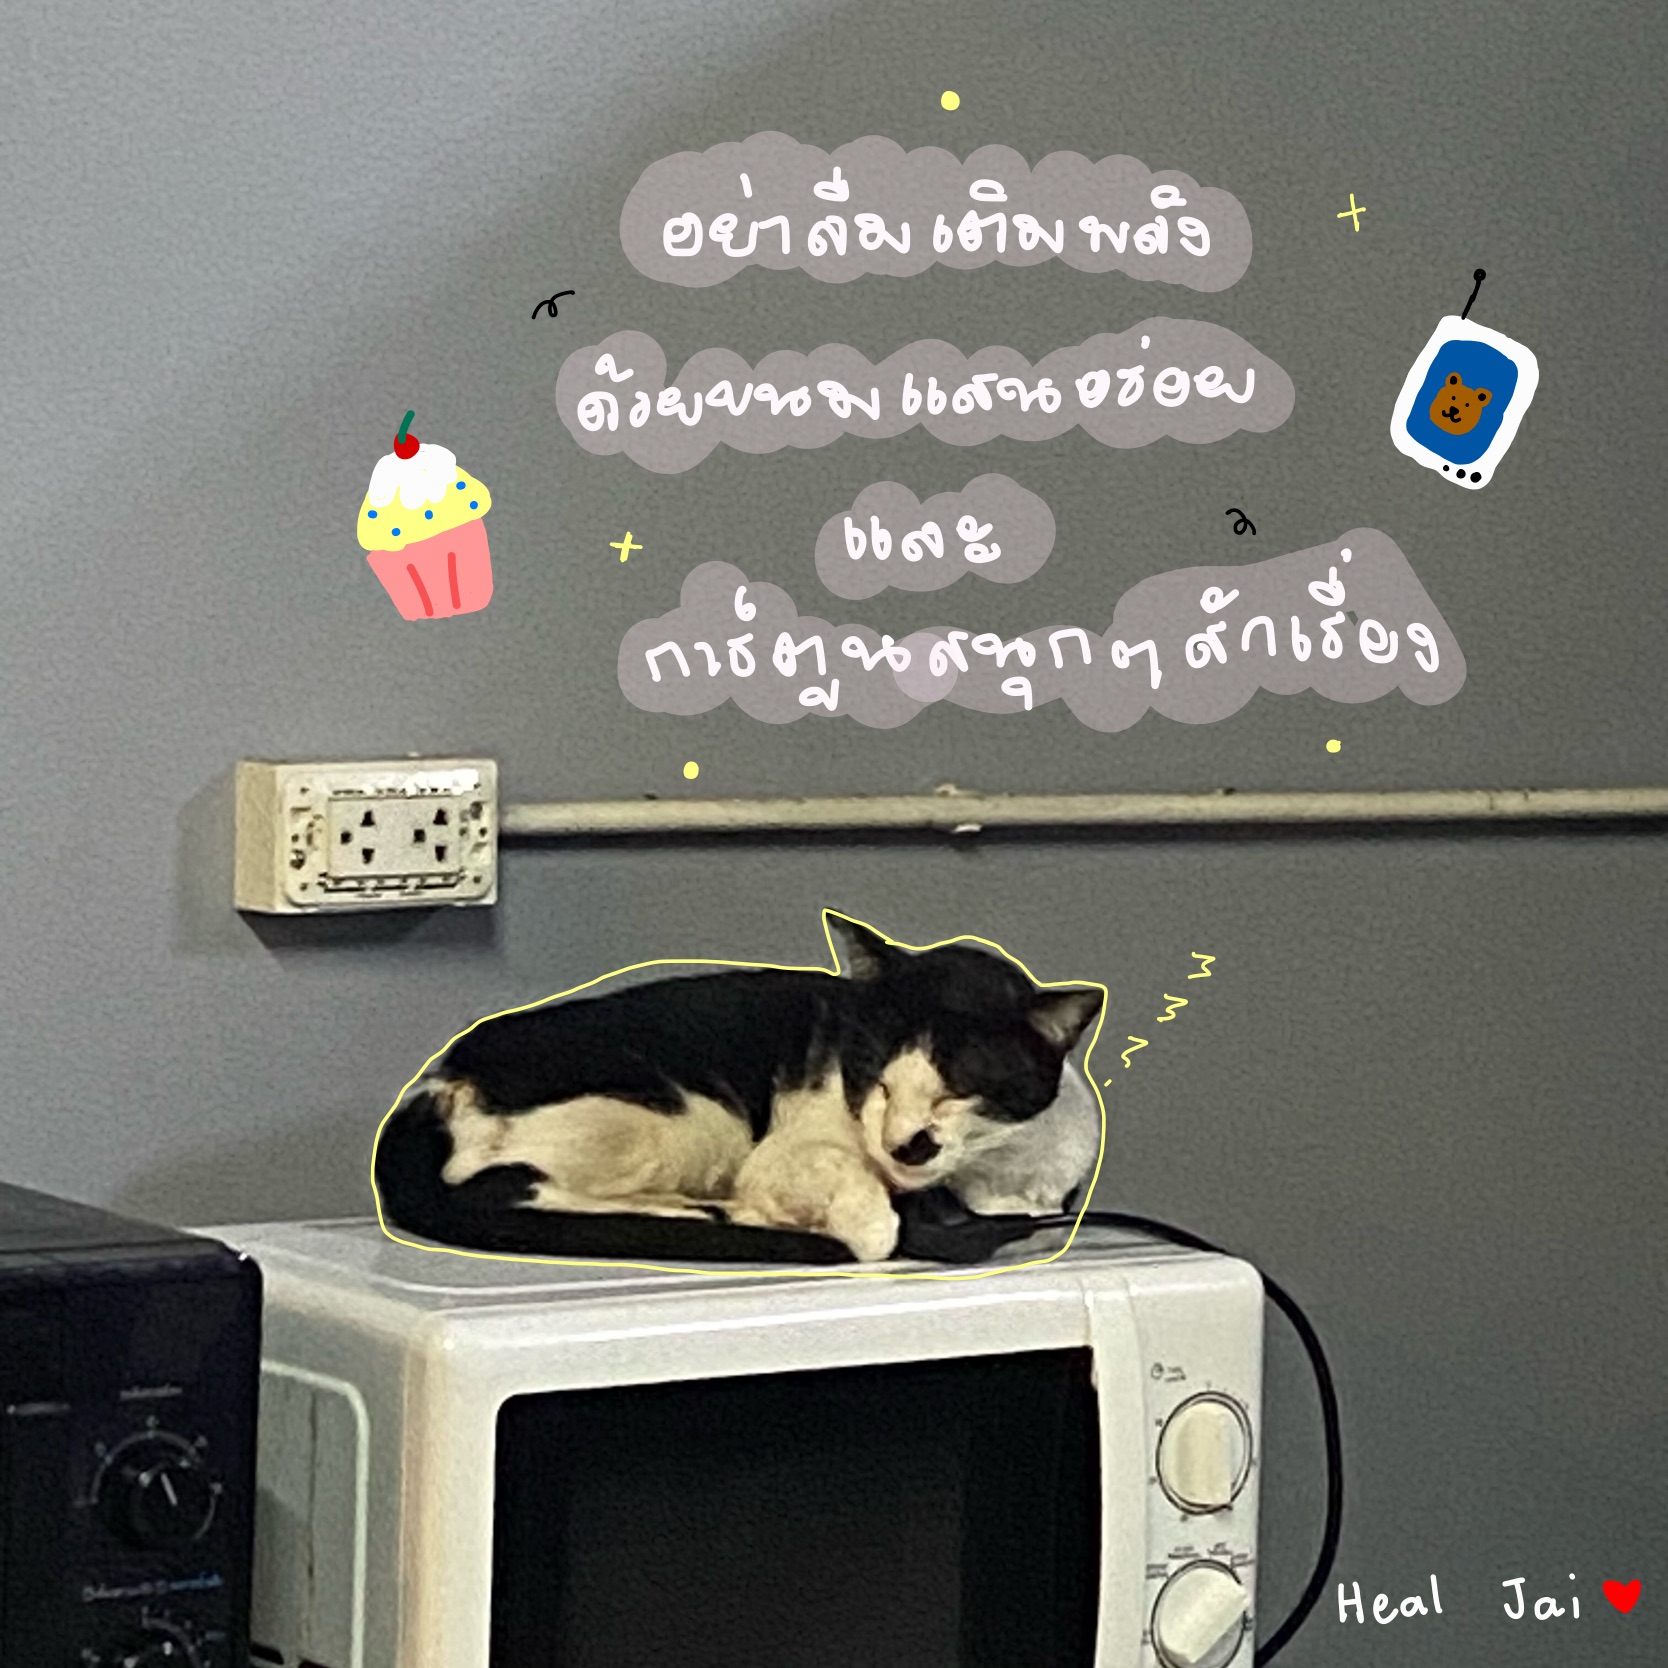 อย่าลืมเติมพลัง
ด้วยขนมแสนอร่อย
และ
การ์ตูนสนุกๆ สักเรื่อง
Heal Jai